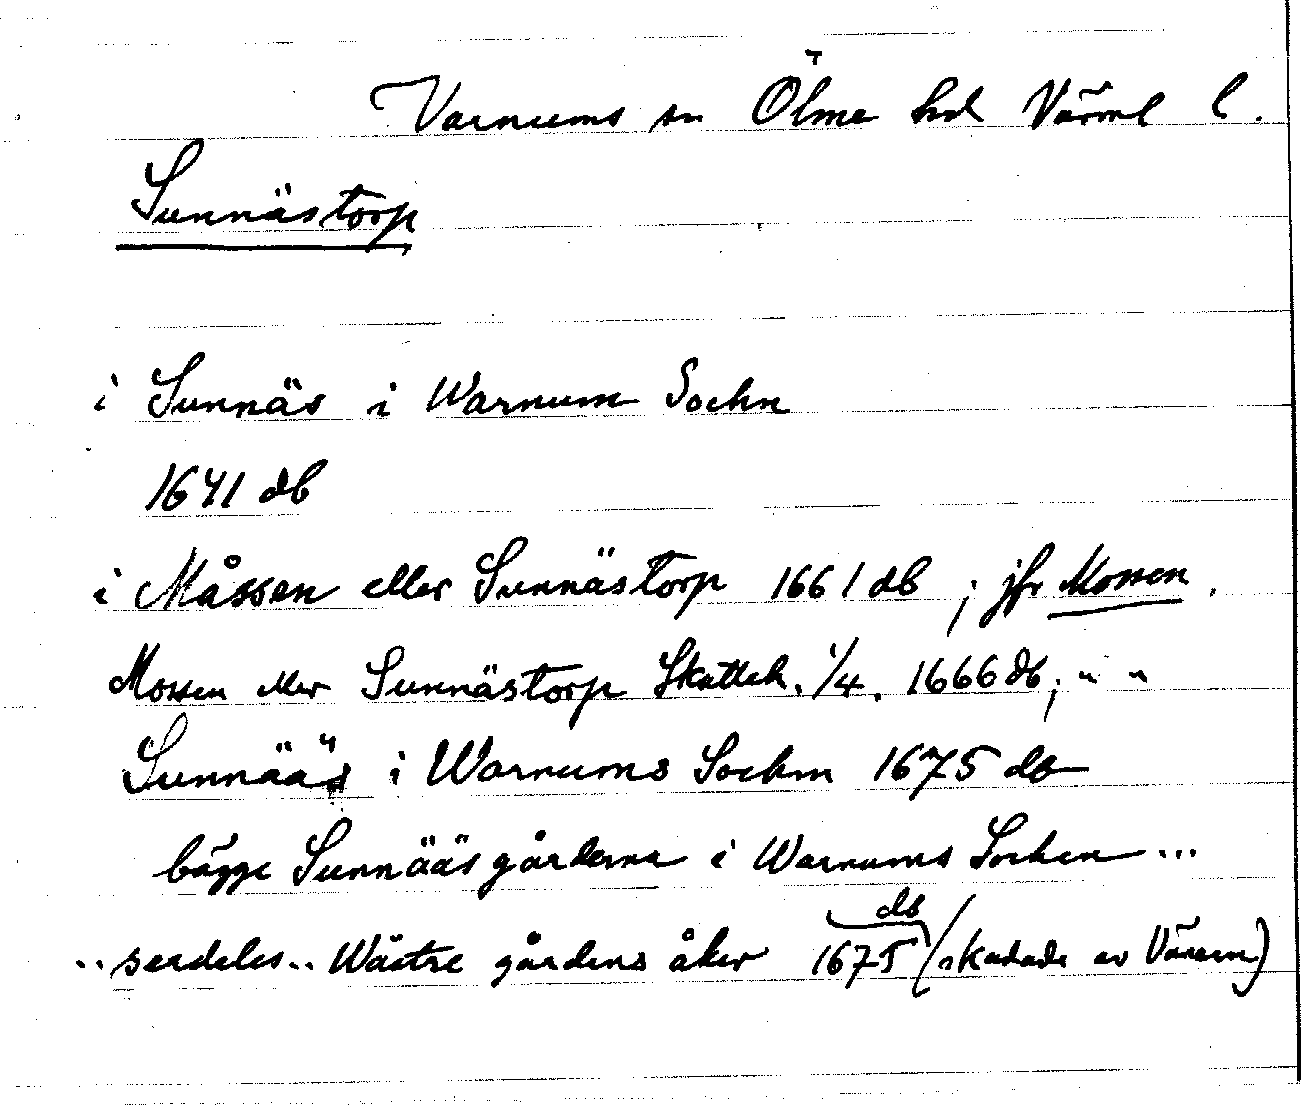 Varnums sn Ölme hd Värml l.
Sunnästorp
i Sunnäs i Warnum Sochn
1641 db
i Måssen eller Sunnästorp 1661 db ; jfr Mossen.
Mossen eller Sunnästorp Skatteh. 1/4. 1666 db; " "
Sunnääs i Warnums Sochn 1675 db
bägge Sunnääs gårderna i Warnums Sochen ...
.. serdeles .. Wästre gårdens åker 1675 db (skadade av Vänern)